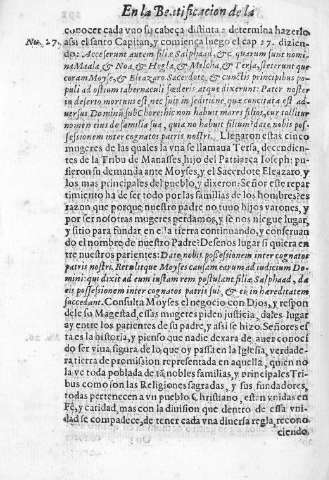 En la Beatificacion de la
conocer cada vno su cabeça distinta: determina hazerlo
Nu. 27. assi el santo Capitan, y comiença luego el cap 27. dizien-
do: Accesserunt autem filiæ Salphaad, &c. quarum sunt nomi
na Maala & Noa, & Hegla, & Melcha, & Tersa, steterunt que
coram Moyse, & Eleazaro Sacerdote, & cunctis principibus po-
puli ad ostium tabernaculi fœderis atque dixerunt: Pater noster
in deserto mortuus est, nec fuit in seditione, quæ concitata est ad
uersus Dominũ sub Chore: hic non habuit mares filios, cur tollitur
nomen eius de familia sua, quia no habuit filium? date nobis pos-
sessionem inter cognatos patris nostri. Llegaron estas cinco
mugeres de las quales la vna se llamaua Tersa, decendien-
tes de la Tribu de Manasses hijo del Patriarca Ioseph: pu-
sieron su demanda ante Moyses, y el Sacerdote Eleazaro, y
los mas principales del pueblo, y dixeron: Señor este repar
timiento ha de ser todo por las familias de los hombres? es
razon que porque nuestro padre no tuuo hijos varones, y
por ser nosotras mugeres perdamos, y se nos niegue lugar,
y sitio para fundar en la tierra continuando, y conseruan
do el nombre de nuestro Padre: Desenos lugar si quiera en
tre nuestros parientes: Dato nobis possessionem inter cognatos
patris nostri. Retulitque Moyses causam earum ad iudicium Do-
mini: qui dixit ad eum iustam rem postulant filiæ Salphaad, da
eis possessionem inter cognatos patris sui, & ei in hæreditatem
succedant. Consulta Moyses el negocio con Dios, y respon
dele su Magestad, essas mugeres piden justicia, dales lugar
ay entre los parientes de su padre, y assi se hizo. Señores es
ta es la historia, y pienso que nadie dexara de auer conoci
do ser viua figura de lo que oy passa en la Iglesia, verdade-
ra tierra de promission representada en aquella, quien no
la ve toda poblada de tã nobles familias, y principales Tri
bus como son las Religiones sagradas, y sus fundadores,
todas pertenecen a vn pueblo Christiano, estan vnidas en
Fè, y caridad, mas con la diuision que dentro de essa vni-
dad se compadece, de tener cada vna diuersa regla, recono-
ciendo